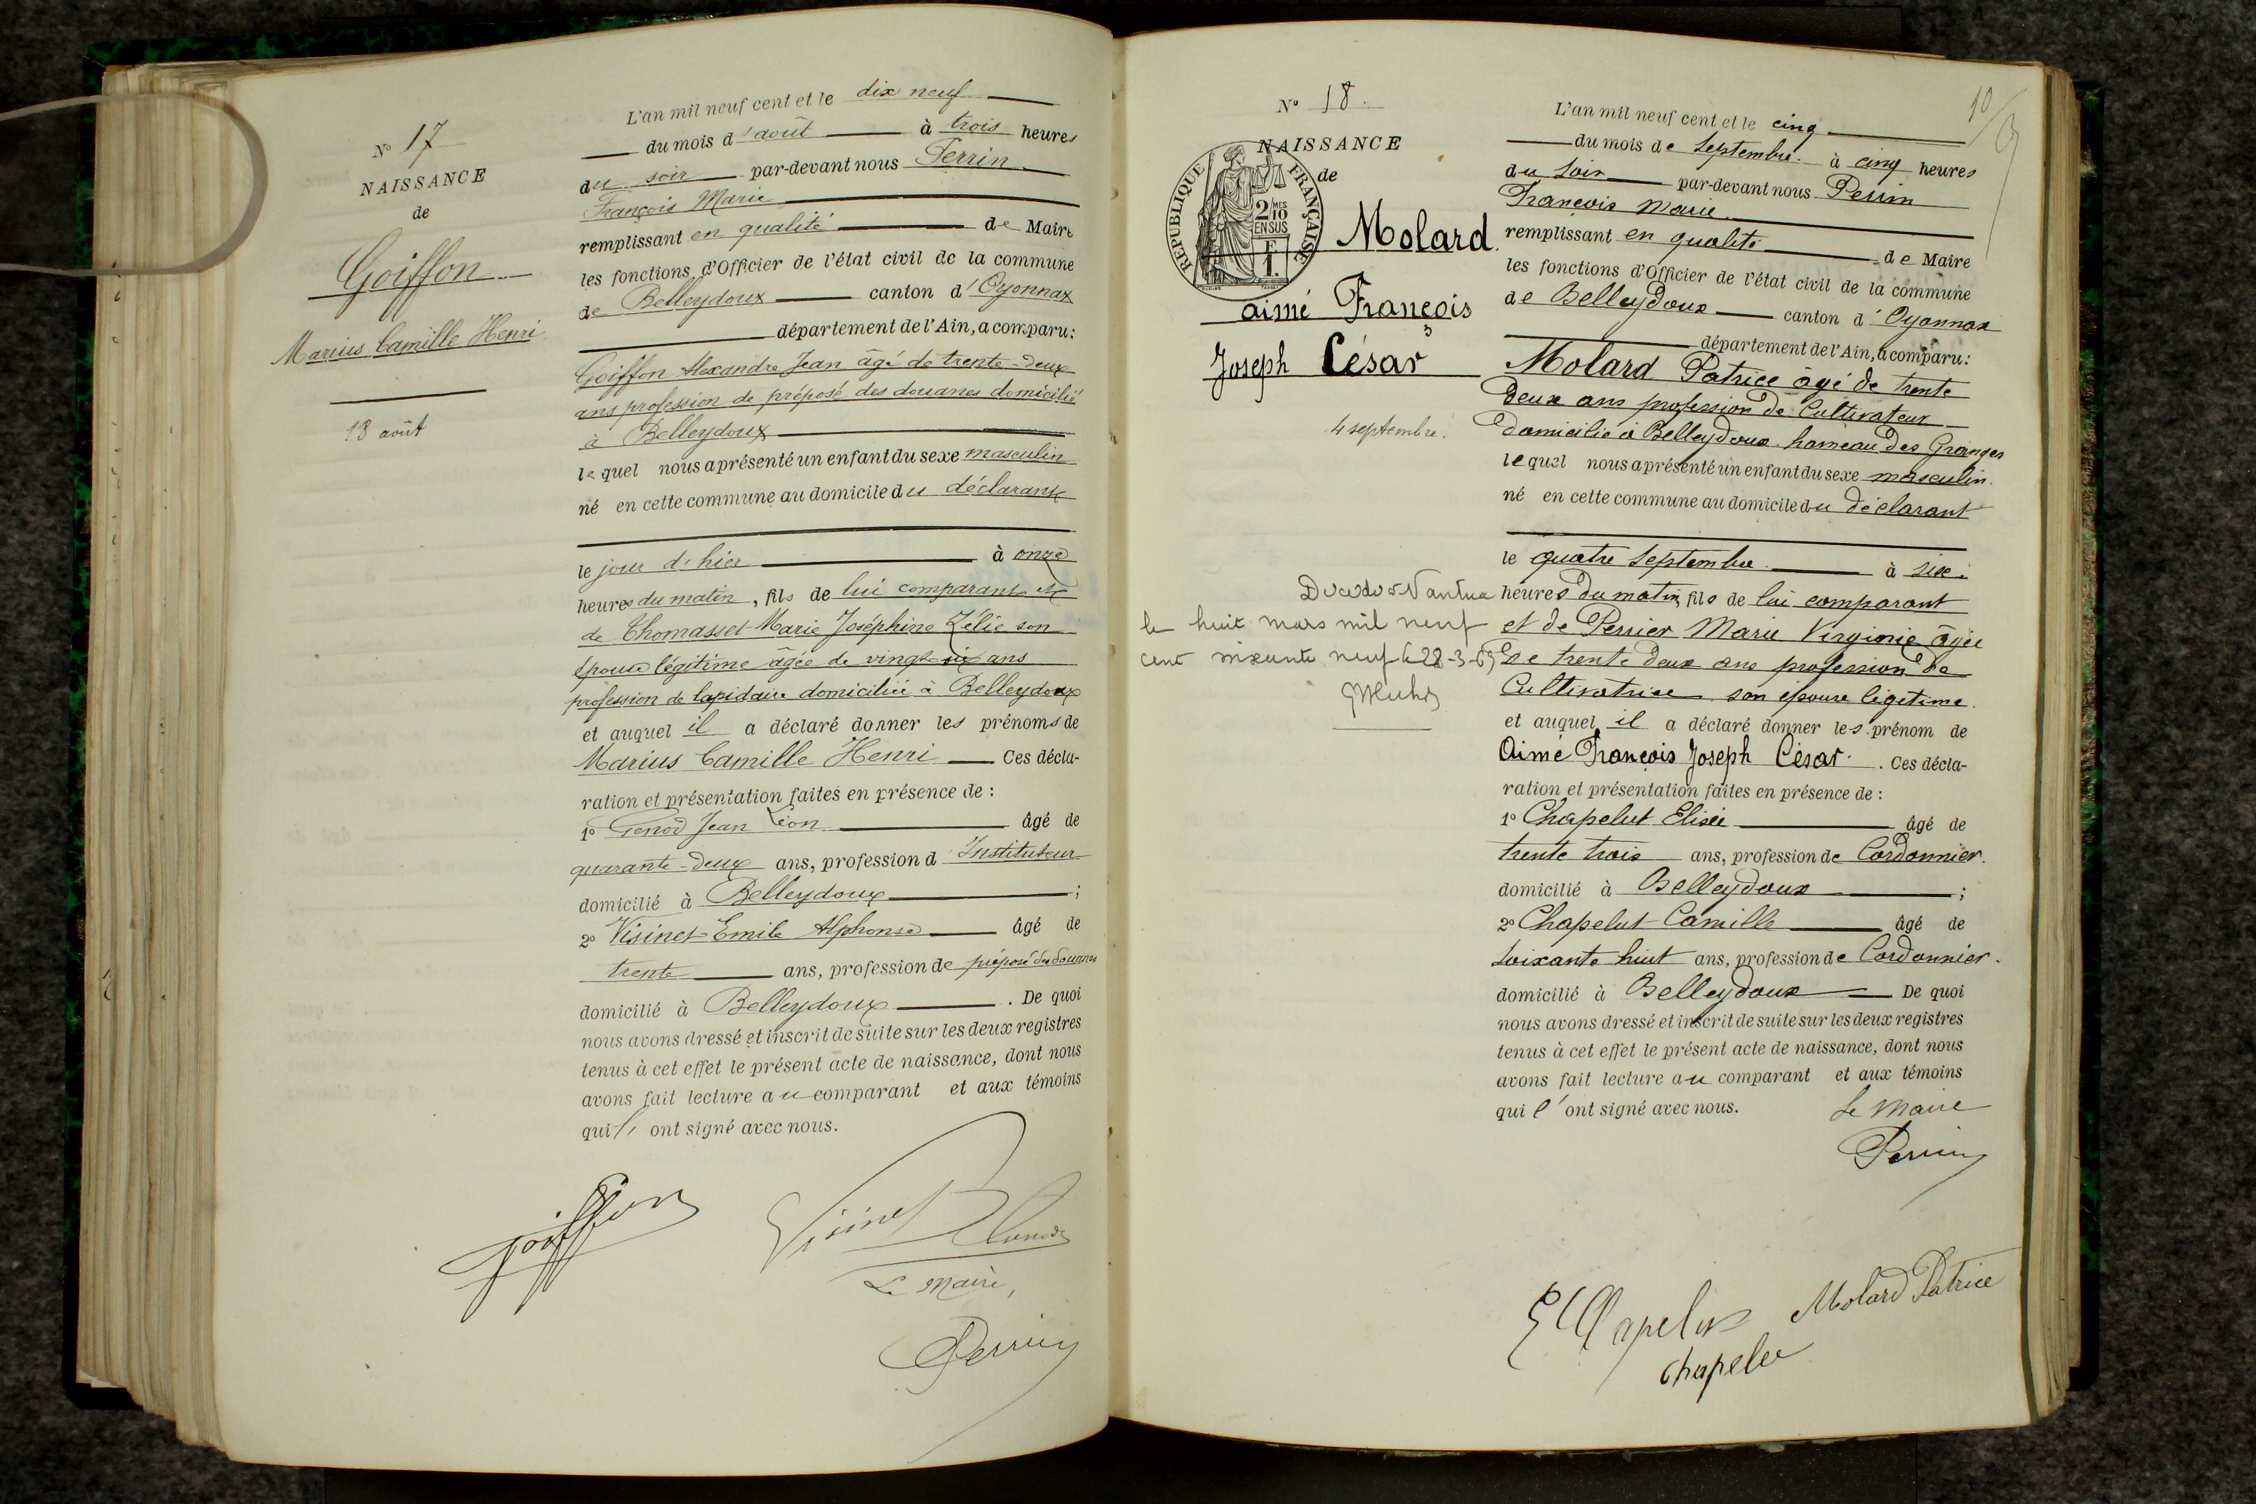 N° 17
NAISSANCE
de
Goiffon
Marius Camille Henri
18 août
L'an mil neuf cent et le dix neuf
du mois d'août à trois heures
du soir par-devant nous Perrin
François Marie
remplissant en qualité de Maire
les fonctions d'Officier de l'état civil de la commune
de Belleydoux canton d'Oyonnax
département de l'Ain, a comparu:
Goiffon Alexandre Jean âgé de trente-deux
ans profession de préposé des douanes domicilié
à Belleydoux
lequel nous a présenté un enfant du sexe masculin
né en cette commune au domicile du déclarant
le jour d'hier à onze
heures du matin, fils de lui comparant et
de Thomasset Marie Joséphine Zélie son
épouse légitime âgée de vingt-six ans
profession de lapidaire domiciliée à Belleydoux
et auquel il a déclaré donner les prénoms de
Marius Camille Henri Ces décla-
ration et présentation faites en présence de :
1° Genod Jean Léon âgé de
quarante-deux ans, profession d'Instituteur
domicilié à Belleydoux ;
2° Visinet Emile Alphonse âgé de
trente ans, profession de préposé des douanes
domicilié à Belleydoux . De quoi
nous avons dressé et inscrit de suite sur les deux registres
tenus à cet effet le présent acte de naissance, dont nous
avons fait lecture au comparant et aux témoins
qui l' ont signé avec nous.
Goiffon
Visinet
Le Maire,
Perrin
10
N° 18.
NAISSANCE
de
RÉPUBLIQUE FRANÇAISE
2/10 MES
EN SUS
F
1.
Molard
aimé François
Joseph César
4 septembre.
Décédé à Nantua
le huit mars mil neuf
cent soixante neuf le 28-3-69
L'an mil neuf cent et le cinq
du mois de Septembre à cinq heures
du Soir par-devant nous Perrin
François Marie
remplissant en qualité de Maire
les fonctions d'Officier de l'état civil de la commune
de Belleydoux canton d'Oyonnax
département de l'Ain, a comparu:
Molard Patrice âgé de trente
deux ans profession de Cultivateur
domicilié à Belleydoux hameau des Granges
lequel nous a présenté un enfant du sexe masculin.
né en cette commune au domicile du déclarant
le quatre Septembre à six
heures du matin, fils de lui comparant
et de Perrier Marie Virginie âgée
de trente deux ans profession de
Cultivatrice son épouse légitime.
et auquel il a déclaré donner les prénom de
Aimé François Joseph César. Ces décla-
ration et présentation faites en présence de :
1° Chapelut Elisée âgé de
trente trois ans, profession de Cordonnier.
domicilié à Belleydoux ;
2° Chapelut Camille âgé de
Soixante huit ans, profession de Cordonnier.
domicilié à Belleydoux De quoi
nous avons dressé et inscrit de suite sur les deux registres
tenus à cet effet le présent acte de naissance, dont nous
avons fait lecture au comparant et aux témoins
qui l' ont signé avec nous. Le Maire
Perrin
E Chapelut Molard Patrice
Chapelu